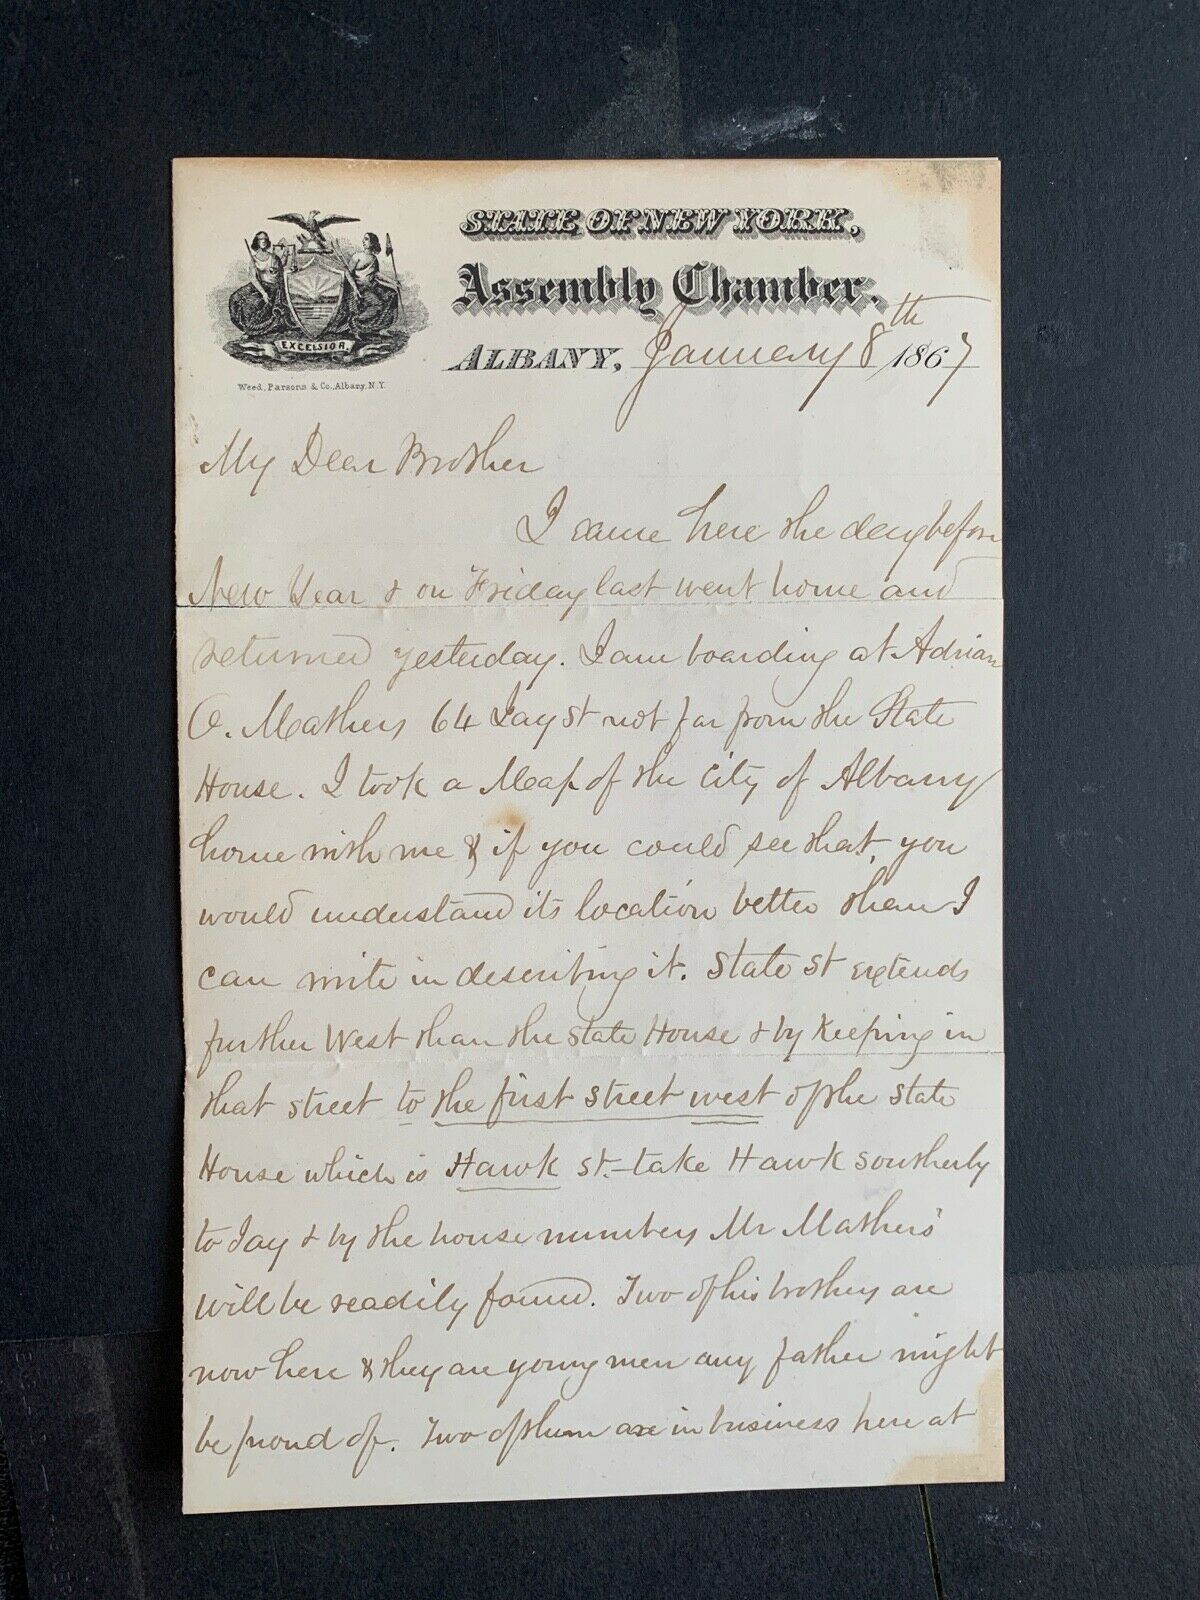 STATE OF NEW YORK,
Assembly Chamber.
EXCELSIOR.
Weed, Parsons & Co., Albany, N.Y.
ALBANY, January 8th 1867
My Dear Brother
I came here the day before
New Year & on Friday last went home and
returned yesterday. I am boarding at Adrian
O. Mathers 64 Jay st not far from the State
House. I took a Map of the City of Albany
home with me & if you could see that, you
would understand its location better than I
can write in describing it. State St extends
further West than the State House & by keeping in
that street to the first street west of the State
House which is Hawk st. - take Hawk southerly
to Jay & by the house numbers Mr Mathers'
will be readily found. Two of his brothers are
now here & they are young men any father might
be proud of. Two of them are in business here at